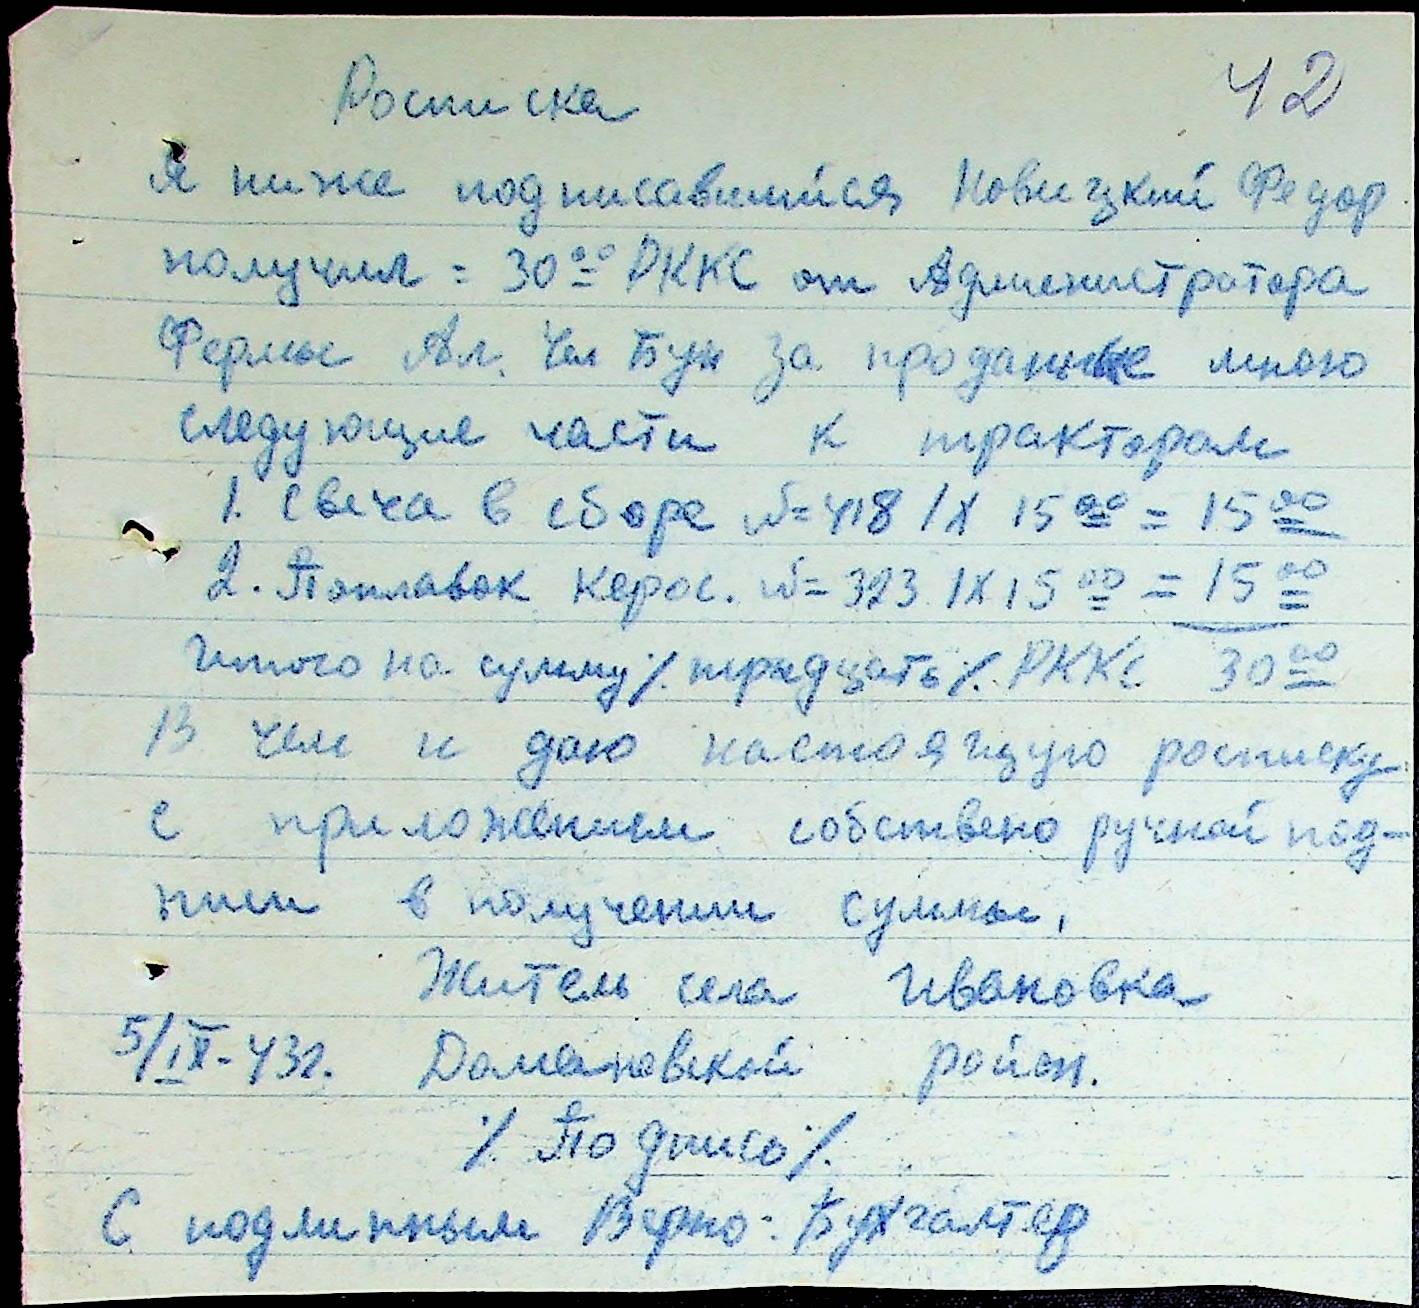 Росписка
42
Я ниже подписавшийся Новицкий Федор
получил = 30 00 РККС от Администротора
Фермы Ал. Чел Бун за проданые мною
следующие части к тракторам
1. Свеча в сборе N=418 1X 15 00 = 15 00
2. Поплавок керос. N=323 1X15 00 = 15 00
Итого на сумму ٪ тридцать ٪ РККС 30 00
В чем и даю настоящую росписку
с приложением собствено ручной под-
писи в получении суммы,
Житель села Ивановка
5/IX-43г. Домановской район.
٪ Подпись ٪
С подлинным Верно: Бухгалтер